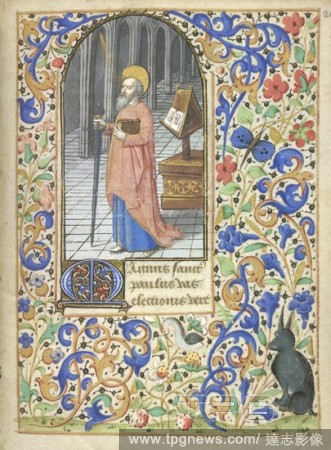 Magnus sanct
paulus vas
electionis vere
www.tpgnews.com / 達志影像